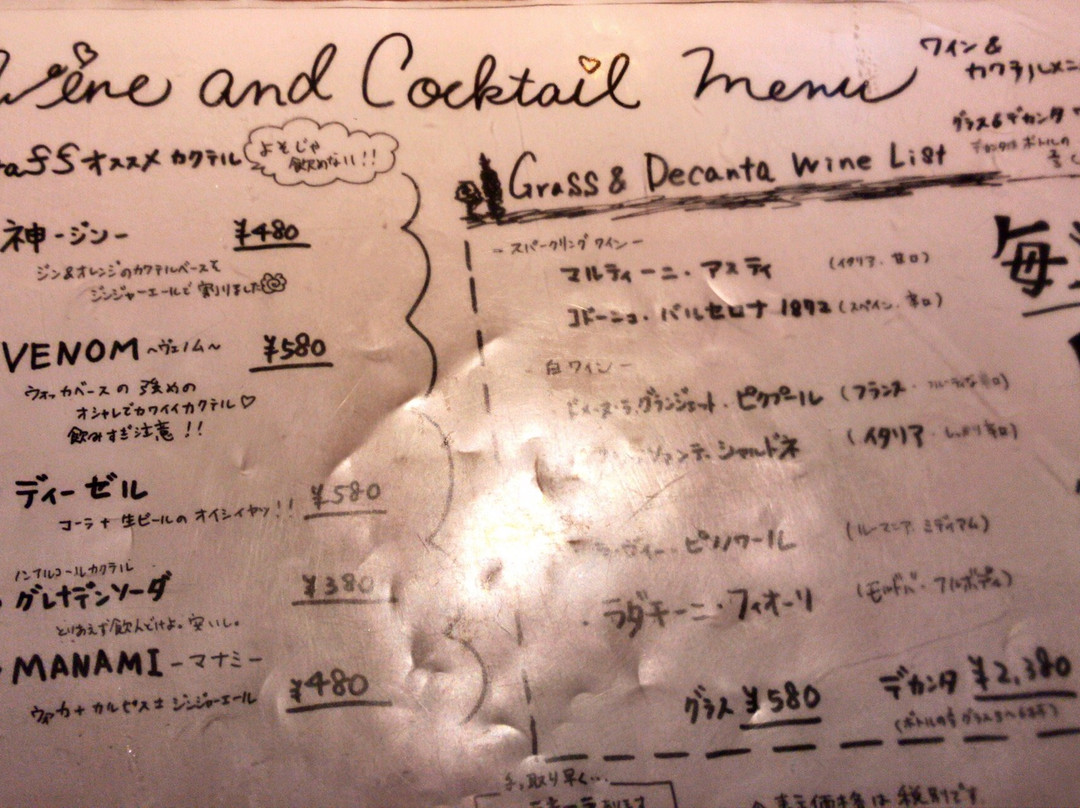 Wine and Cocktail Menu
ワイン&
カクテルメニ
オススメカクテル
よそじゃ
飲めない!!
神-ジン-
¥480
ジン&オレンジのカクテルベースを
ジンジャーエールで割りました
VENOM ~ヴェノム~
¥580
ウォッカベースの強めの
オシャレでカワイイカクテル♡
飲みすぎ注意!!
ディーゼル
¥580
コーラ+生ビールのオイシイヤツ!!
ノンアルコールカクテル
グレナデンソーダ
¥380
とりあえず飲んどけよ。安いし。
MANAMI -マナミー
¥480
ウォッカ+カルピス+ジンジャーエール
グラス&デカンタ
デカンタはボトルの
Grass & Decanta Wine List
-スパークリングワイン-
マルティーニ・アスティ (イタリア・甘口)
コドーニュ・バルセロナ 1872 (スペイン・辛口)
-白ワイン-
ドメーヌ・ラ・グランジェット・ピクプール (フランス・フルーティな辛口)
シャルドネ (イタリア・しっかり辛口)
ヴィー・ピノノワール (ルーマニア・ミディアム)
・ラダチーニ・フィオーリ (モルドバ・フルボディ)
グラス ¥580
デカンタ ¥2,380
毎
お取り早く…
表示価格は税別です